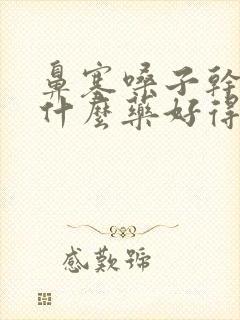 鼻塞嗓子幹
什麼藥好得
感歎號